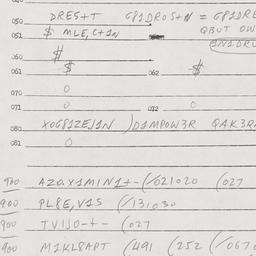 050 DRES+T G81DROS+N = G81DRE
051 $ MLE,C+1N QBUT OW
060 $
061 $ 062 $
070 0
071 0 072 0
080 XOG81ZEJ1N )D1MPOW3R QAK3RA
081 0
900 AZQX1M1N1+- (/021020 (027
900 PL8E,V1S (/131030
900 TV1JO-+- (027
900 M1KL8APT (491 (252 (/067